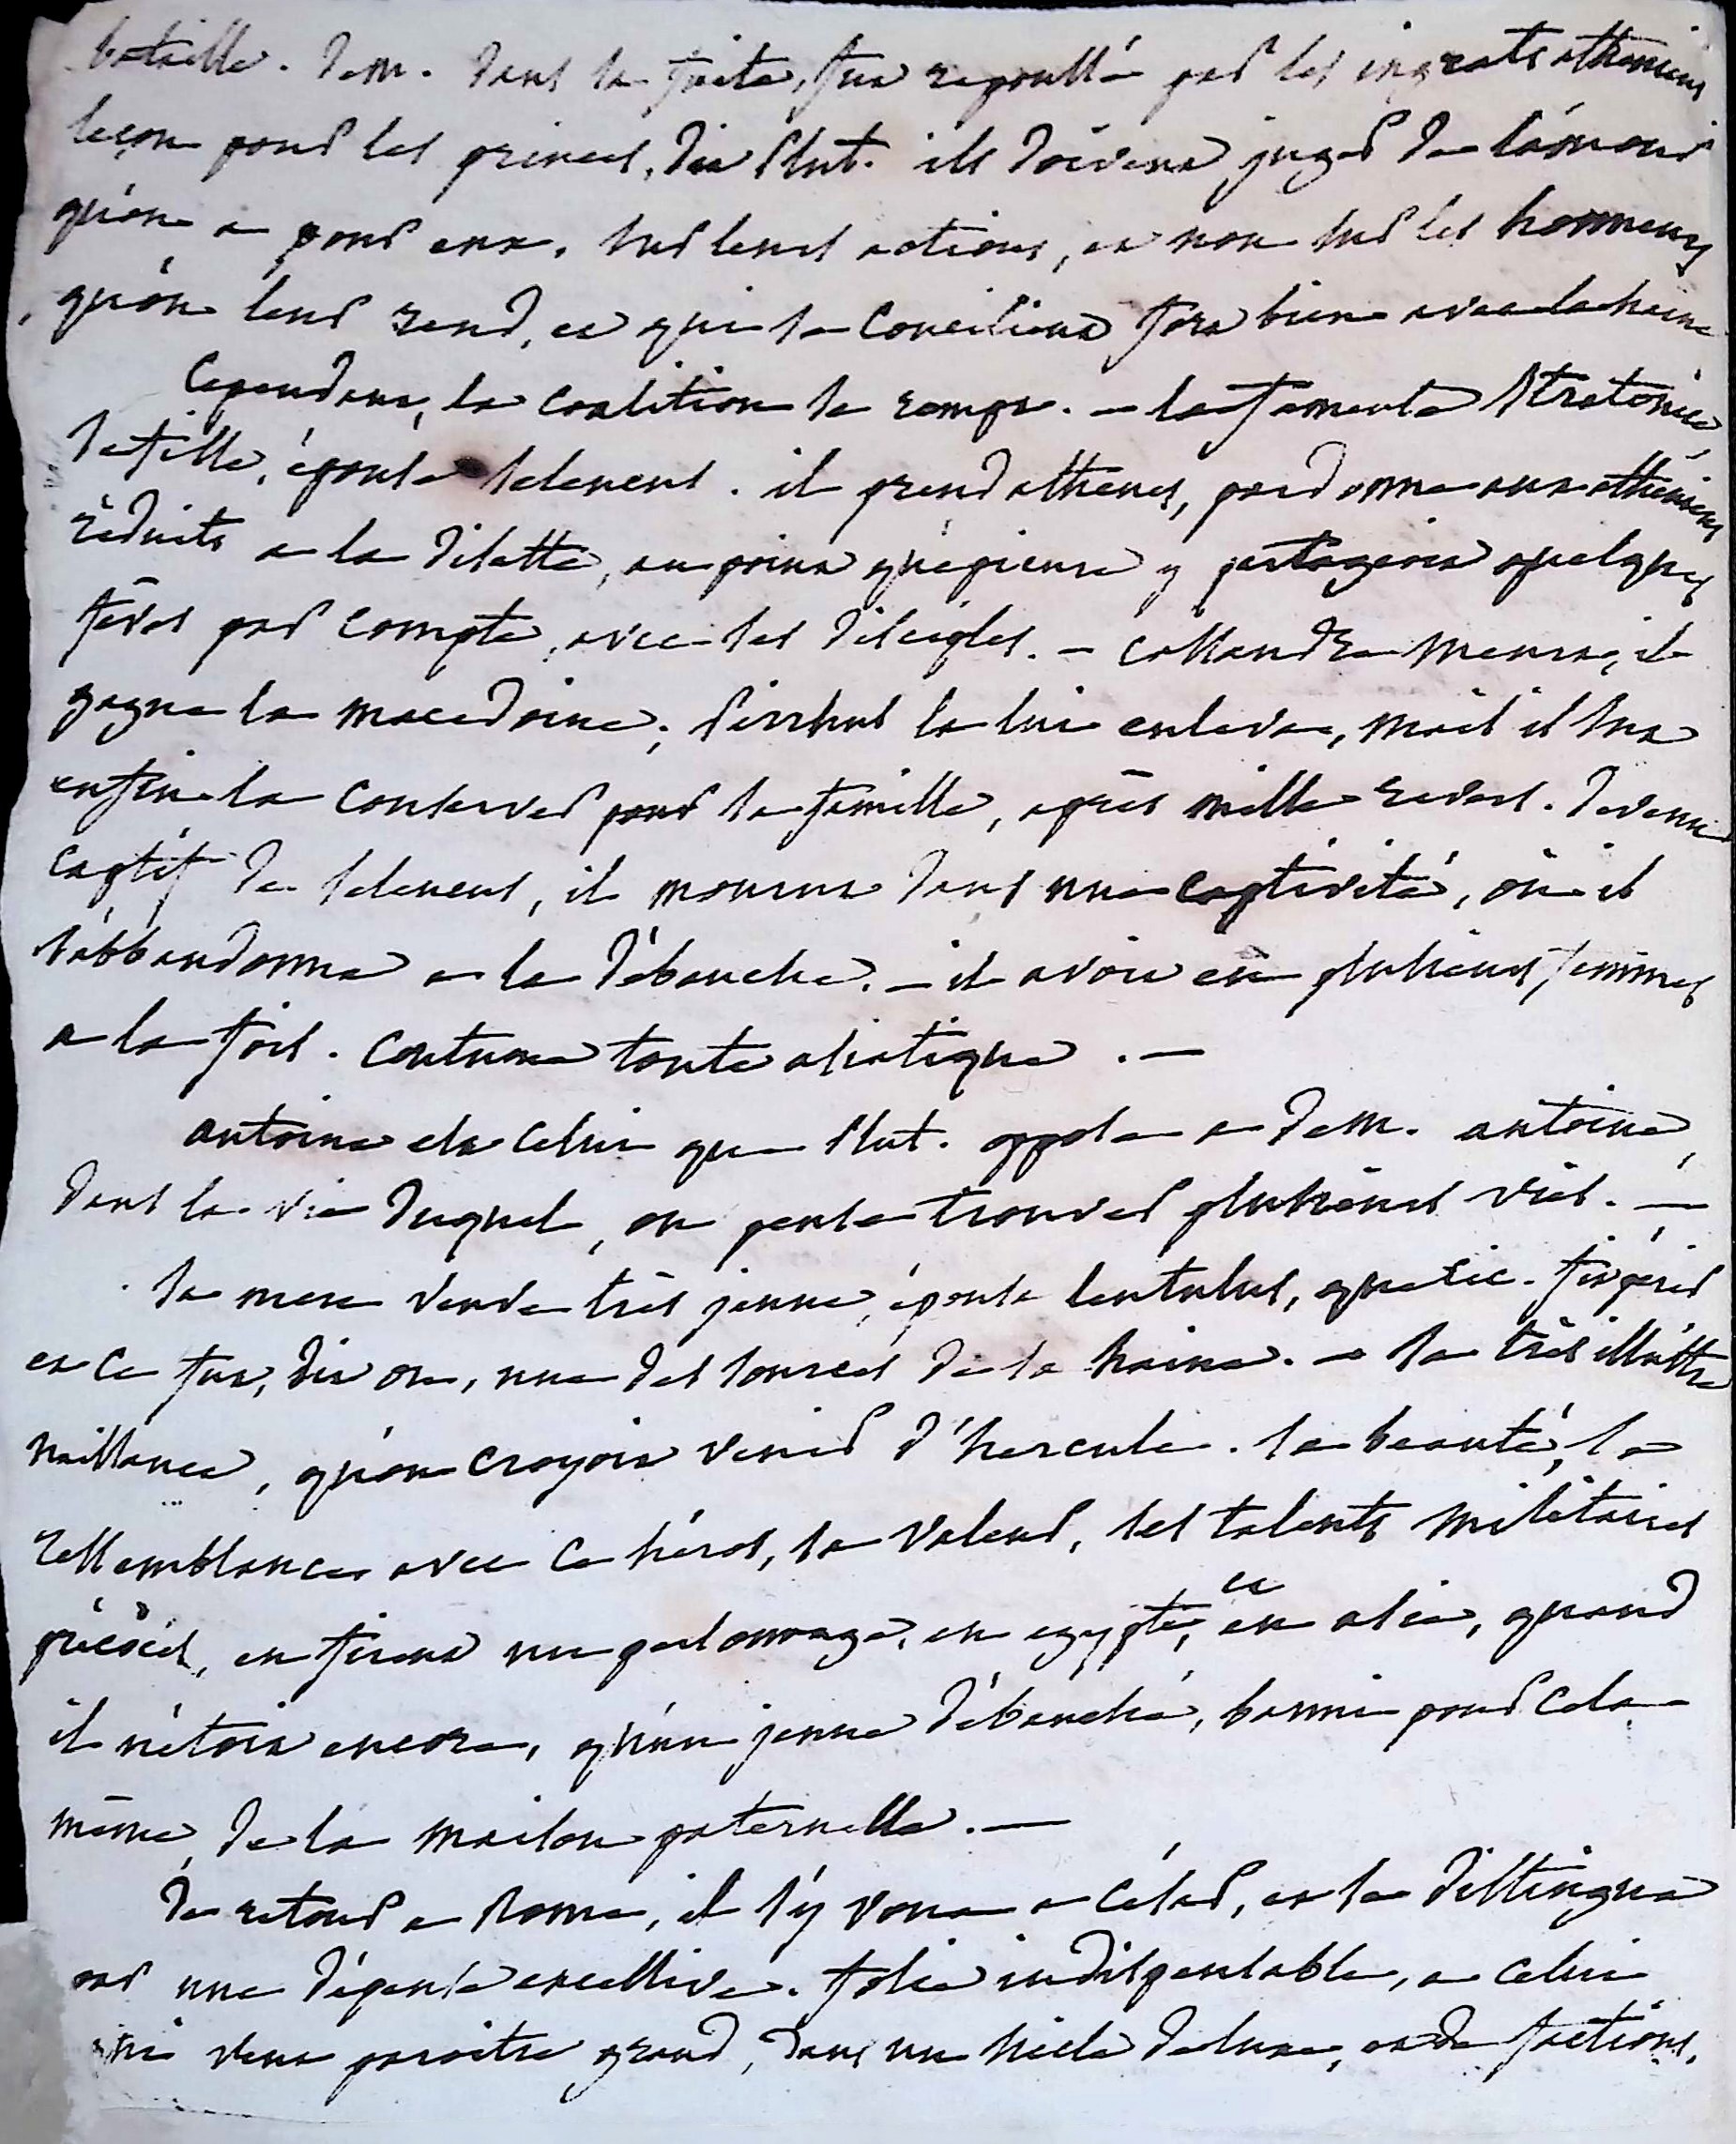 bataille. Dem. dans sa fuite, fut repoussé par les ingrats athéniens
leçon pour les princes, dit Plut. ils doivent juger de l'amour
qu'on a pour eux, sur leurs actions, et non sur les honneurs
qu'on leur rend, et qui se concilient fort bien avec la haine
Cependant, la coalition se rompt. — la fameuse Stratonice
sa fille, épouse seleucus. il prend athenes, pardonne aux athéniens
réduits a la disette, au point qu'épicure y partageoit quelques
fèves par compte, avec ses disciples. — Cassandre meurt, il
gagne la macedoine; Pirrhus la lui enleve, mais il sut
enfin la conserver pour sa famille, après mille revers. devenu
captif de seleucus, il mourut dans une captivité, où il
s'abbandonna a la débauche. — il avoit eu plusieurs femmes
a la fois. coutume toute asiatique. —
antoine est celui que Plut. oppose a Dem. antoine,
dans la vie duquel, on pense trouver plusieurs vies. —
sa mere veuve très jeune, épousa lentulus, que Cic. fit périr
et ce fut, dit on, une des sources de sa haine. — sa très illustre
naissance, qu'on croyoit venir d'hercule. sa beauté, sa
ressemblance avec ce héros, sa valeur, ses talents militaires
précoces, en firent un personnage, en egypte, et en asie, quand
il n'étoit encore, qu'un jeune débauché, banni pour cela
même, de la maison paternelle. —
De retour a Rome, il s'y voua a César, et se distingua
par une dépense excessive. folie indispensable, a celui
qui veut paroitre grand, dans un siecle de luxe, et de factions.